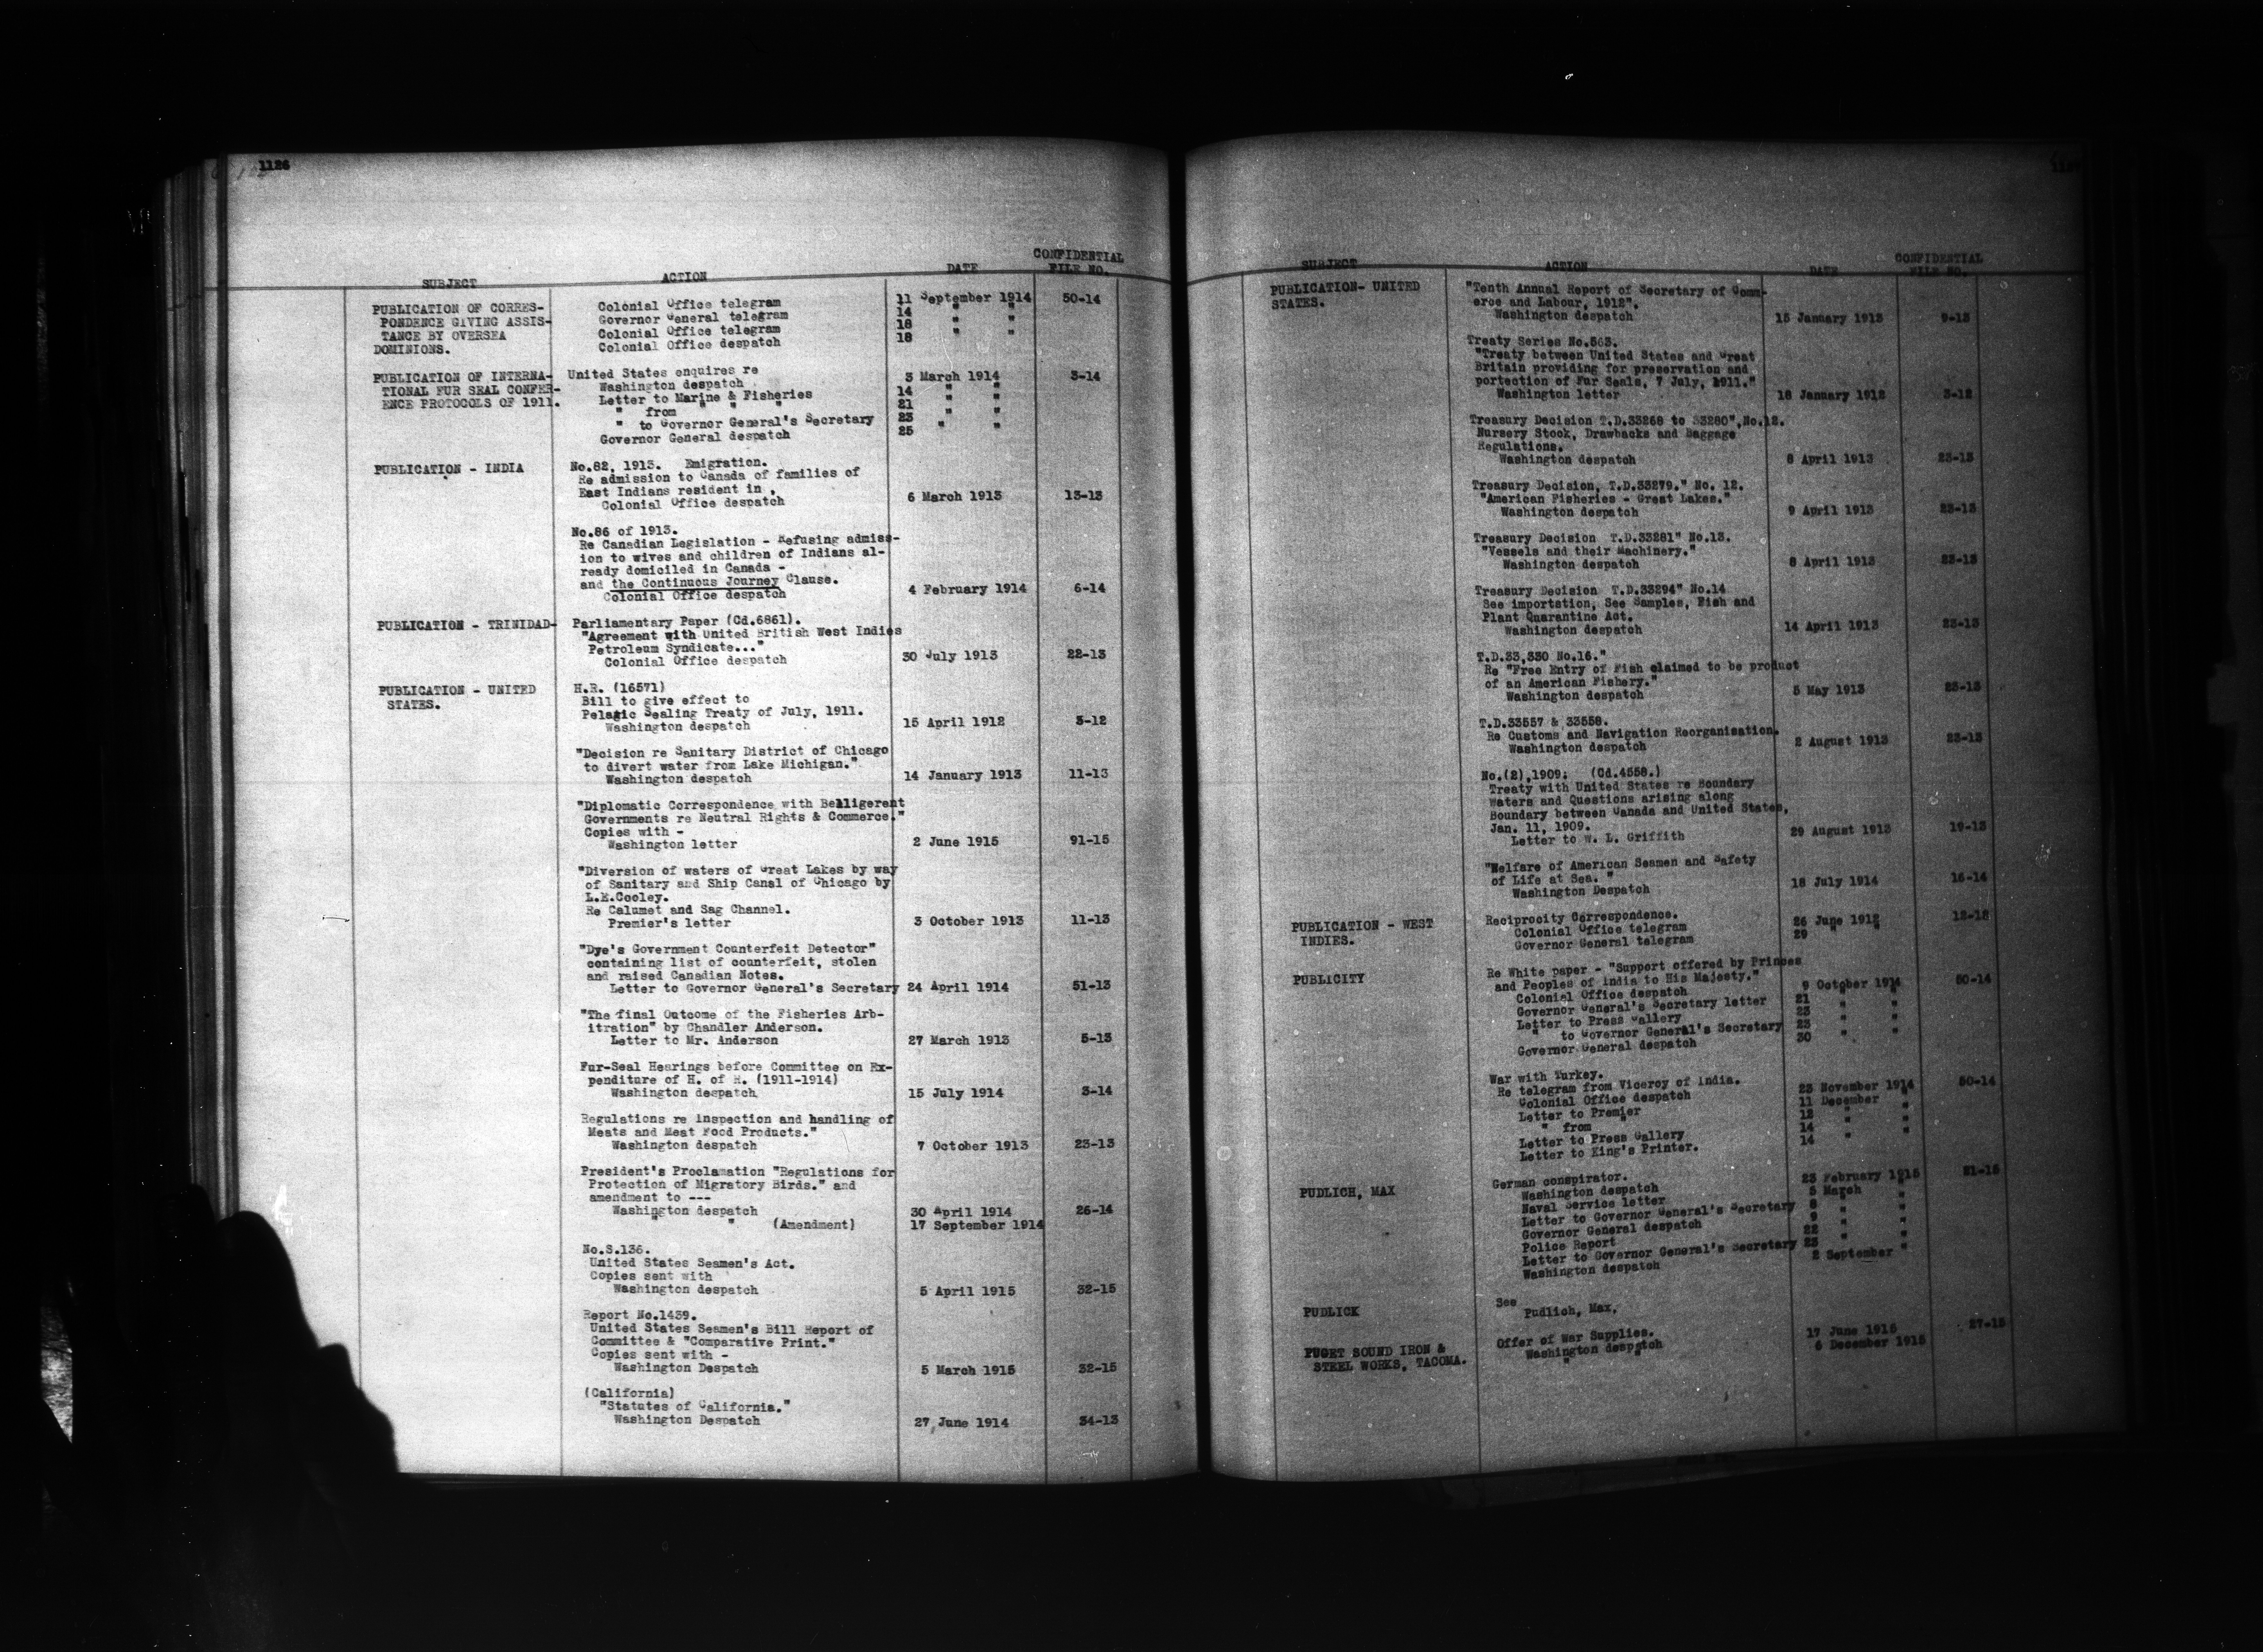 1126
SUBJECT ACTION DATE CONFIDENTIAL FILE NO.
PUBLICATION OF CORRES- Colonial Office telegram 11 September 1914 50-14
PONDENCE GIVING ASSIS- Governor General telegram 14 " "
TANCE BY OVERSEA Colonial Office telegram 18 " "
DOMINIONS. Colonial Office despatch 18 " "
PUBLICATION OF INTERNA- United States enquires re
TIONAL FUR SEAL CONFER- Washington despatch 3 March 1914 3-14
ENCE PROTOCOLS OF 1911. Letter to Marine & Fisheries 14 " "
" from " " " 21 " "
" to Governor General's Secretary 23 " "
Governor General despatch 25 " "
PUBLICATION - INDIA No.82, 1913. Emigration.
Re admission to Canada of families of
East Indians resident in ,
Colonial Office despatch 6 March 1913 13-13
No.86 of 1913.
Re Canadian Legislation - Refusing admiss-
ion to wives and children of Indians al-
ready domiciled in Canada -
and the Continuous Journey Clause.
Colonial Office despatch 4 February 1914 6-14
PUBLICATION - TRINIDAD- Parliamentary Paper (Cd.6861).
"Agreement with United British West Indies
Petroleum Syndicate..."
Colonial Office despatch 30 July 1913 22-13
PUBLICATION - UNITED H.R. (16571)
STATES. Bill to give effect to
Pelagic Sealing Treaty of July, 1911.
Washington despatch 15 April 1912 3-12
"Decision re Sanitary District of Chicago
to divert water from Lake Michigan."
Washington despatch 14 January 1913 11-13
"Diplomatic Correspondence with Belligerent
Governments re Neutral Rights & Commerce."
Copies with -
Washington letter 2 June 1915 91-15
"Diversion of waters of Great Lakes by way
of Sanitary and Ship Canal of Chicago by
L.E.Cooley.
Re Calumet and Sag Channel.
Premier's letter 3 October 1913 11-13
"Dye's Government Counterfeit Detector"
containing list of counterfeit, stolen
and raised Canadian Notes.
Letter to Governor General's Secretary 24 April 1914 51-13
"The final Outcome of the Fisheries Arb-
itration" by Chandler Anderson.
Letter to Mr. Anderson 27 March 1913 5-13
Fur-Seal Hearings before Committee on Ex-
penditure of H. of R. (1911-1914)
Washington despatch 15 July 1914 3-14
Regulations re Inspection and handling of
Meats and Meat Food Products."
Washington despatch 7 October 1913 23-13
President's Proclamation "Regulations for
Protection of Migratory Birds." and
amendment to ---
Washington despatch 30 April 1914 26-14
" " (Amendment) 17 September 1914
No.S.136.
United States Seamen's Act.
Copies sent with
Washington despatch 5 April 1915 32-15
Report No.1439.
United States Seamen's Bill Report of
Committee & "Comparative Print."
Copies sent with -
Washington Despatch 5 March 1915 32-15
(California)
"Statutes of California."
Washington Despatch 27 June 1914 34-13
SUBJECT ACTION DATE CONFIDENTIAL FILE NO.
PUBLICATION- UNITED "Tenth Annual Report of Secretary of Comm-
STATES. erce and Labour, 1912".
Washington despatch 15 January 1913 9-13
Treaty Series No.563.
"Treaty between United States and Great
Britain providing for preservation and
portection of Fur Seals, 7 July, 1911."
Washington letter 18 January 1912 3-12
Treasury Decision T.D.33268 to 33280",No.12.
Nursery Stock, Drawbacks and Baggage
Regulations.
Washington despatch 8 April 1913 23-13
Treasury Decision, T.D.33279." No. 12.
"American Fisheries - Great Lakes."
Washington despatch 9 April 1913 23-13
Treasury Decision T.D.33281" No.13.
"Vessels and their Machinery."
Washington despatch 8 April 1913 23-13
Treasury Decision T.D.33294" No.14
See importation, See Samples, Fish and
Plant Quarantine Act.
Washington despatch 14 April 1913 23-13
T.D.33,330 No.16."
Re "Free Entry of Fish claimed to be product
of an American Fishery."
Washington despatch 5 May 1913 23-13
T.D.33557 & 33558.
Re Customs and Navigation Reorganisation.
Washington despatch 2 August 1913 23-13
No.(2),1909; (Cd.4558.)
Treaty with United States re Boundary
Waters and Questions arising along
Boundary between Canada and United States,
Jan. 11, 1909.
Letter to W. L. Griffith 29 August 1913 19-13
"Welfare of American Seamen and Safety
of Life at Sea. "
Washington Despatch 18 July 1914 16-14
PUBLICATION - WEST Reciprocity Correspondence.
INDIES. Colonial Office telegram 26 June 1912 12-12
Governor General telegram 29 " "
PUBLICITY Re White paper - "Support offered by Princes
and Peoples of India to His Majesty."
Colonial Office despatch 9 October 1914 50-14
Governor General's Secretary letter 21 " "
Letter to Press Gallery 23 " "
" to Governor General's Secretary 23 " "
Governor General despatch 30 " "
War with Turkey.
Re telegram from Viceroy of India.
Colonial Office despatch 23 November 1914 50-14
Letter to Premier 11 December "
" from " 12 " "
Letter to Press Gallery 14 " "
Letter to King's Printer. 14 "
PUDLICH, MAX German conspirator.
Washington despatch 23 February 1915 21-15
Naval Service letter 5 March "
Letter to Governor General's Secretary 8 " "
Governor General despatch 9 " "
Police Report 22 " "
Letter to Governor General's Secretary 23 " "
Washington despatch 2 September "
PUDLICK See
Pudlich, Max,
PUGET SOUND IRON & Offer of War Supplies.
STEEL WORKS, TACOMA. Washington despatch 17 June 1915 27-15
" " 6 December 1915